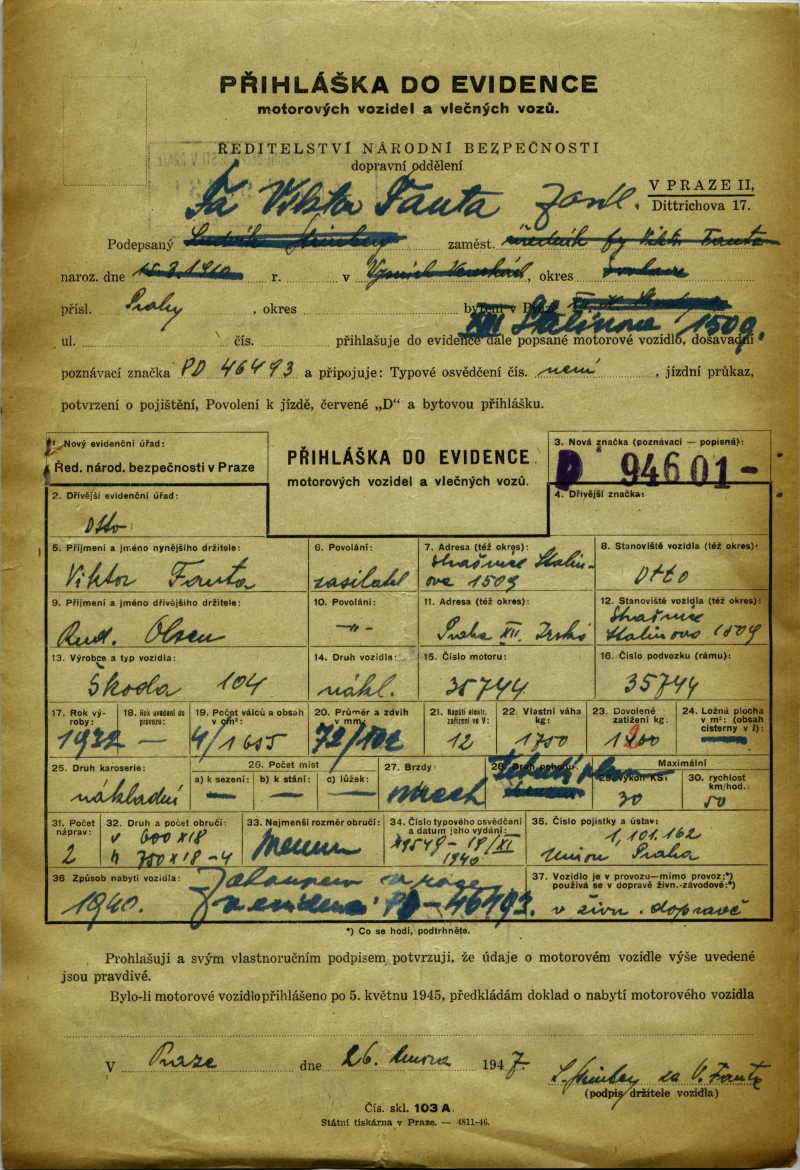 PŘIHLÁŠKA DO EVIDENCE
motorových vozidel a vlečných vozů.
ŘEDITELSTVÍ NÁRODNÍ BEZPEČNOSTI
dopravní oddělení
V PRAZE II,
Dittrichova 17.
Fa Viktor Fanta
Podepsaný zaměst.
naroz. dne r. v , okres
přísl. Prahy , okres bytem v Praze
XIII Stalinova 1509.
ul. čís. přihlašuje do evidence dále popsané motorové vozidlo, dosavadní
poznávací značka PD 46493 a připojuje: Typové osvědčení čís. není , jízdní průkaz,
potvrzení o pojištění, Povolení k jízdě, červené „D“ a bytovou přihlášku.
1. Nový evidenční úřad:
Řed. národ. bezpečnosti v Praze
PŘIHLÁŠKA DO EVIDENCE
motorových vozidel a vlečných vozů.
3. Nová značka (poznávací — popisná):
P 94601-
2. Dřívější evidenční úřad:
4. Dřívější značka:
5. Příjmení a jméno nynějšího držitele:
Viktor Fanta
6. Povolání:
zasilatel
7. Adresa (též okres):
Strašnice Stalin-
ova 1509
8. Stanoviště vozidla (též okres):
9. Příjmení a jméno dřívějšího držitele:
Rud. Olsen
10. Povolání:
-„-
11. Adresa (též okres):
Praha XII.
12. Stanoviště vozidla (též okres):
Strašnice
Stalinova 1509
13. Výrobce a typ vozidla:
Škoda 104
14. Druh vozidla:
nákl.
15. Číslo motoru:
35744
16. Číslo podvozku (rámu):
35744
17. Rok výroby:
1932
18. Rok uvedení do provozu:
—
19. Počet válců a obsah v cm³:
4/1655
20. Průměr a zdvih v mm:
72/102
21. Napětí elektr. zařízení ve V:
12
22. Vlastní váha kg:
1750
23. Dovolené zatížení kg:
24. Ložná plocha v m²: (obsah cisterny v l):
25. Druh karoserie:
nákladní
26. Počet míst
a) k sezení:
b) k stání:
c) lůžek:
27. Brzdy
mech
28. Druh pohonu:
Maximální
29. výkon KS:
30
30. rychlost km/hod.:
50
31. Počet náprav:
2
32. Druh a počet obručí:
v 600 x 18
h 750 x 18 - 4
33. Nejmenší rozměr obručí:
34. Číslo typového osvědčení a datum jeho vydání:
19549 - 18/XI
1940
35. Číslo pojistky a ústav:
1,101.162
Union Praha
36 Způsob nabytí vozidla:
1940.
v evidenci PD - 46493.
37. Vozidlo je v provozu—mimo provoz:*)
používá se v dopravě živn.-závodové:*)
v živn. dopravě
*) Co se hodí, podtrhněte.
Prohlašuji a svým vlastnoručním podpisem potvrzuji, že údaje o motorovém vozidle výše uvedené
jsou pravdivé.
Bylo-li motorové vozidlo přihlášeno po 5. květnu 1945, předkládám doklad o nabytí motorového vozidla
V Praze dne 26. února 1947.
za V. Fanta
(podpis držitele vozidla)
Čís. skl. 103 A.
Státní tiskárna v Praze. — 4811-46.